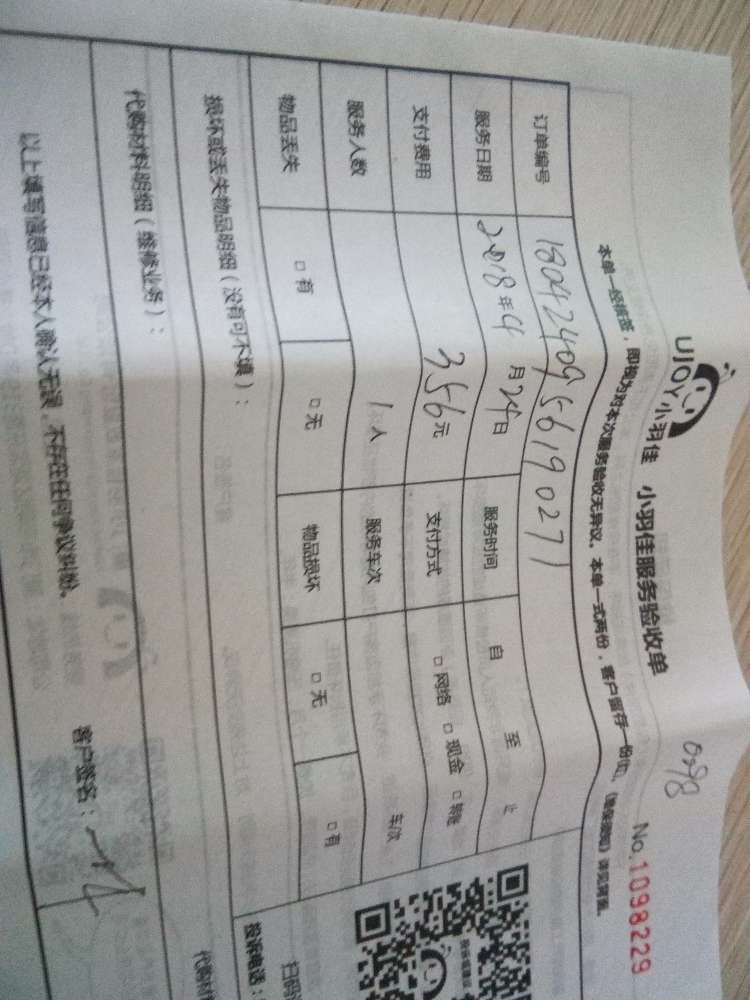 UJOY小羽佳 小羽佳服务验收单
No.1098229
本单一经签签，即视为对本次服务验收无异议。本单一式两份，客户留存一份
订单编号 1804240956190271
服务日期 2018年4月24日 服务时间 自 至 止
支付费用 356元 支付方式 □网络 □现金
服务人数 1人 服务车次 车次
物品丢失 □有 □无 物品损坏 □无 □有
损坏或丢失物品明细（没有可不填）：
代购材料明细（维修业务）：
以上填写信息已经本人确认无误，不存在任何争议纠纷。
客户签名：
投诉电话：